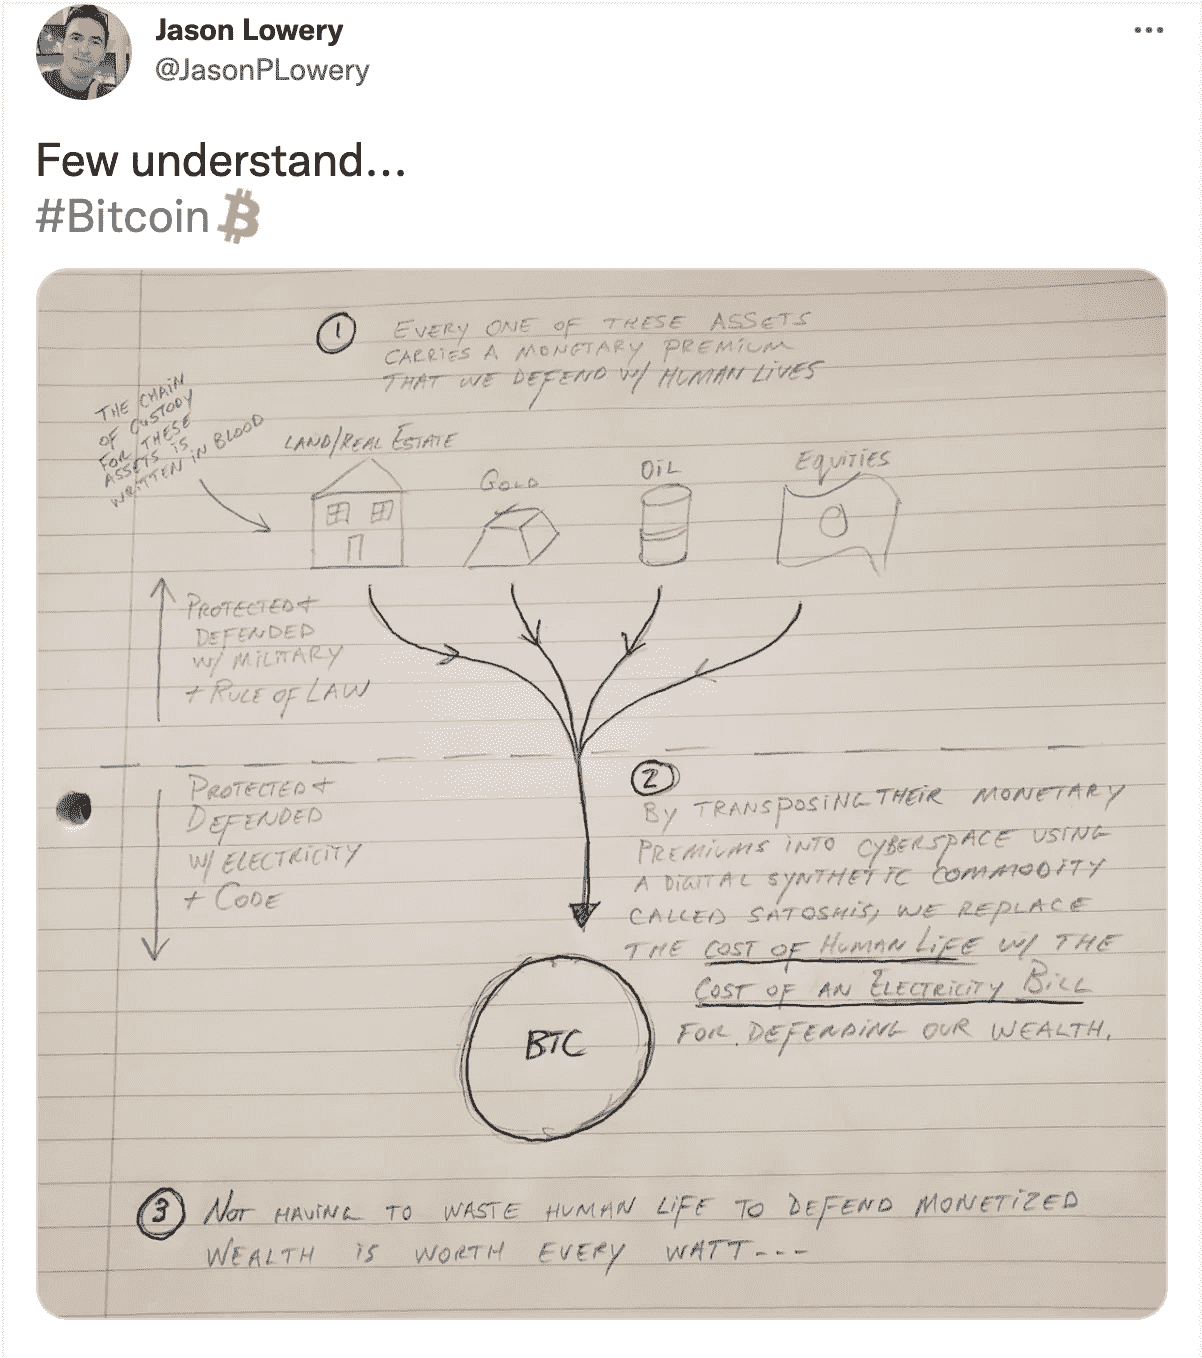 Jason Lowery
@JasonPLowery
Few understand...
#Bitcoin
1 EVERY ONE OF THESE ASSETS
CARRIES A MONETARY PREMIUM
THAT WE DEFEND W/ HUMAN LIVES
THE CHAIN
OF CUSTODY
FOR THESE
ASSETS IS
WRITTEN IN BLOOD
LAND/REAL ESTATE
GOLD
OIL
EQUITIES
PROTECTED +
DEFENDED
W/ MILITARY
+ RULE OF LAW
PROTECTED +
DEFENDED
W/ ELECTRICITY
+ CODE
2
BY TRANSPOSING THEIR MONETARY
PREMIUMS INTO CYBERSPACE USING
A DIGITAL SYNTHETIC COMMODITY
CALLED SATOSHIS, WE REPLACE
THE COST OF HUMAN LIFE W/ THE
COST OF AN ELECTRICITY BILL
FOR DEFENDING OUR WEALTH.
BTC
3 NOT HAVING TO WASTE HUMAN LIFE TO DEFEND MONETIZED
WEALTH IS WORTH EVERY WATT---